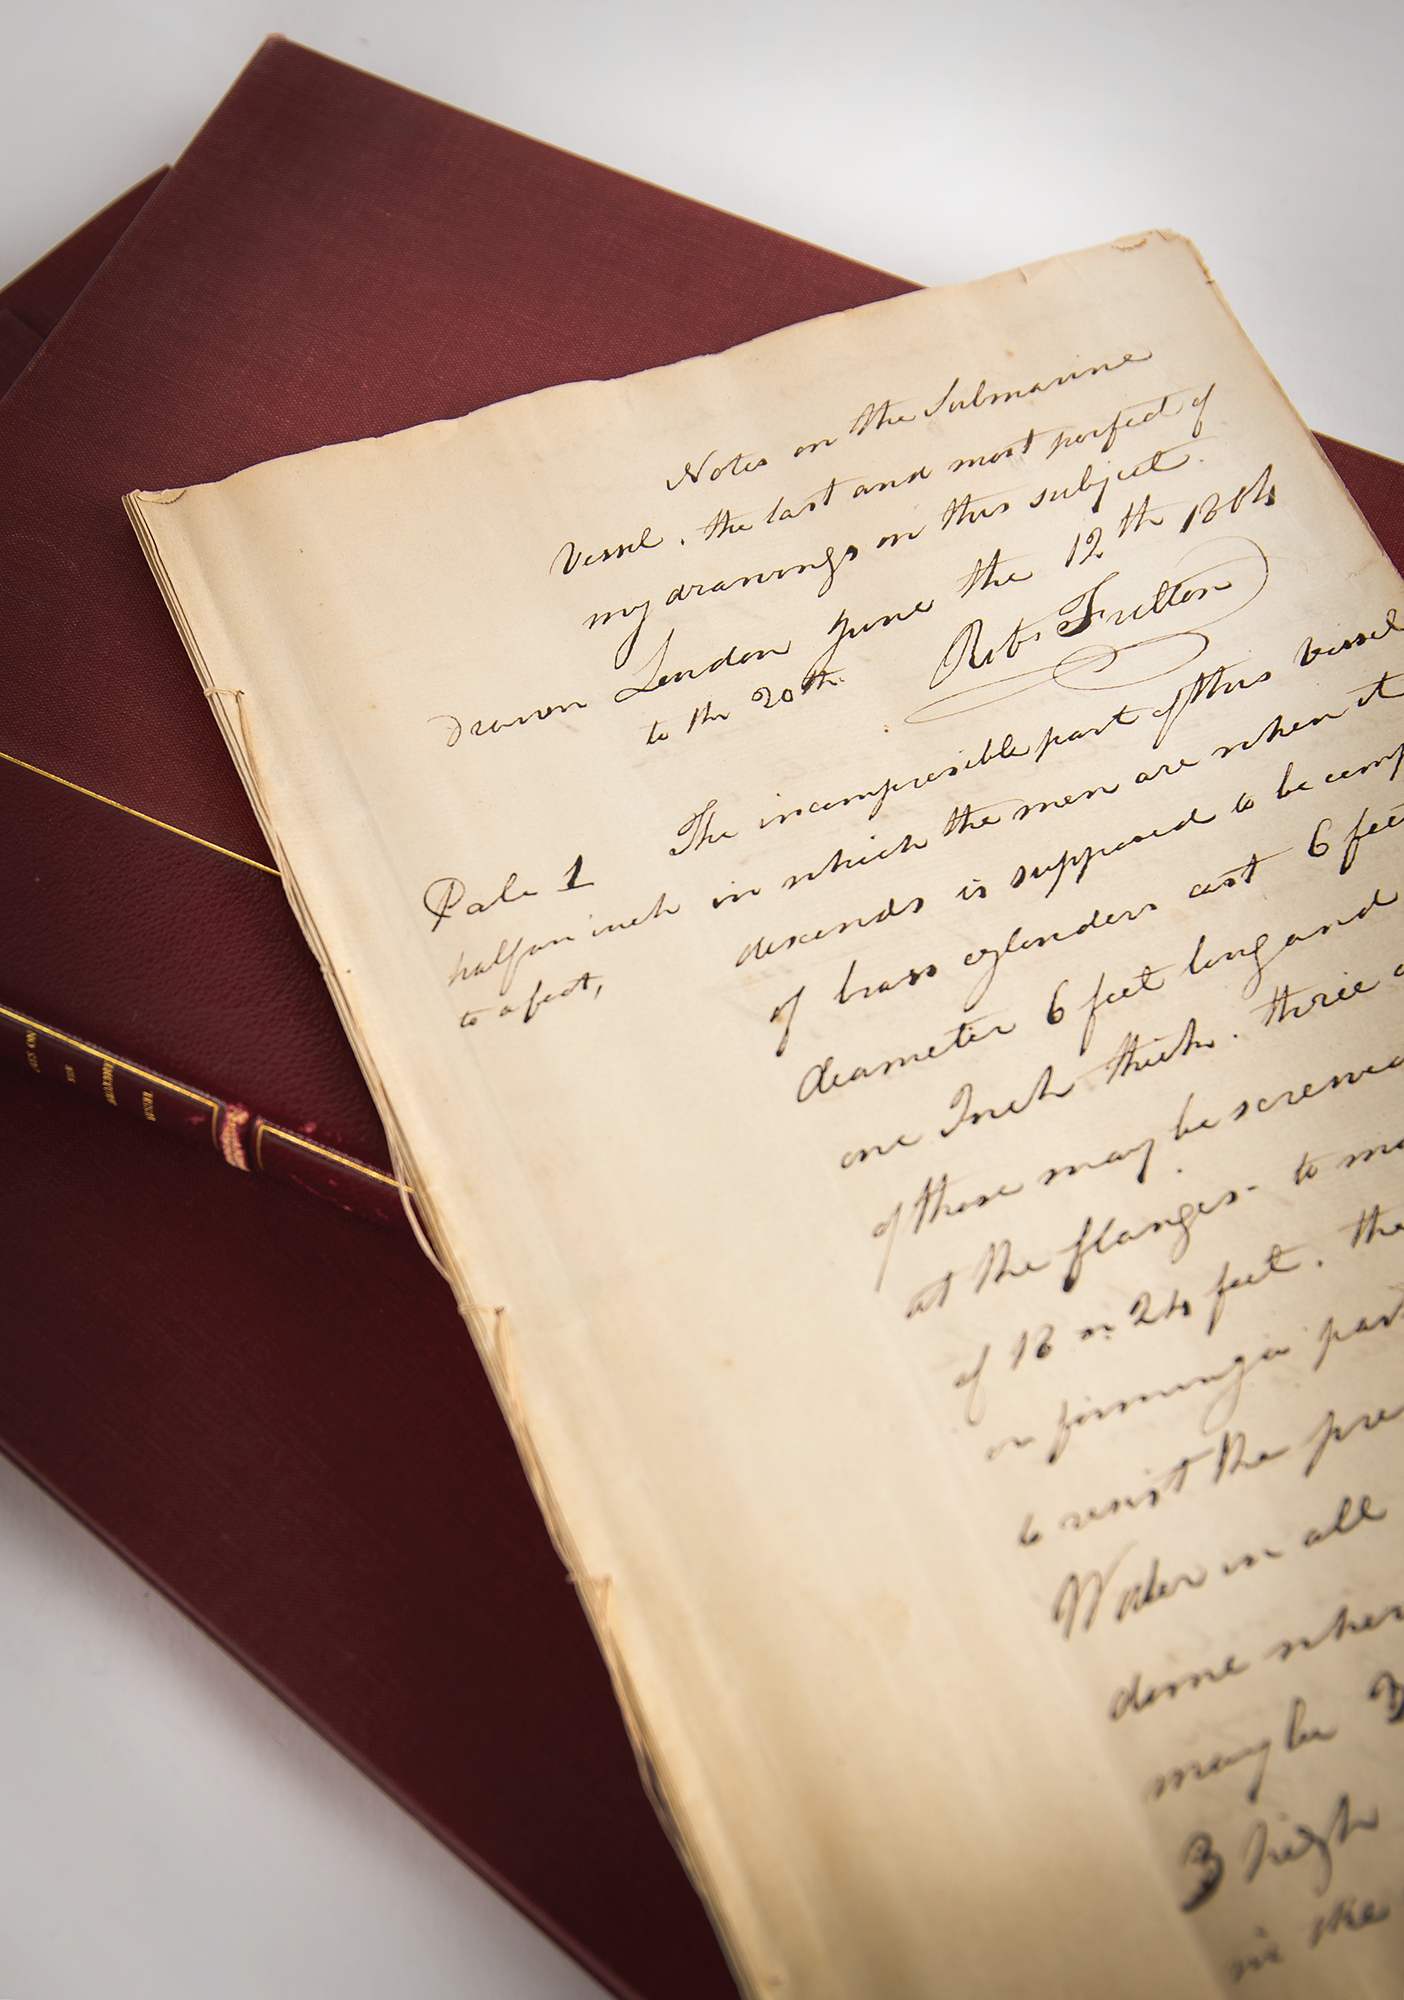 Notes on the Submarine
Vessel, the last and most perfect of
my drawings on this subject.
drawn London June the 12th 1804
to the 20th Robt Fulton
The incompresible part of this vessel
Pale 1
half an inch in which the men are when it
to a foot, descends is supposed to be comp
of brass cylenders cast 6 feet
diameter 6 feet long and
one Inch thick. three
of these may be screwed
at the flanges - to ma
of 18 or 24 feet. the
or forming a par
to resist the pre
Water in all
dome wher
may be 3
3 high
in the